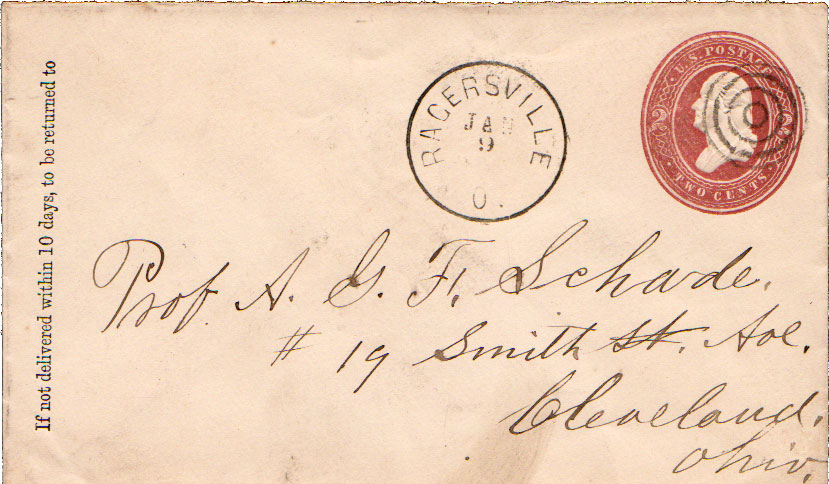 If not delivered within 10 days, to be returned to
RAGERSVILLE
JAN
9
O.
U.S. POSTAGE
2 2
TWO CENTS.
Prof A. G. F. Schade.
# 19 Smith St. Ave.
Cleveland.
Ohio.